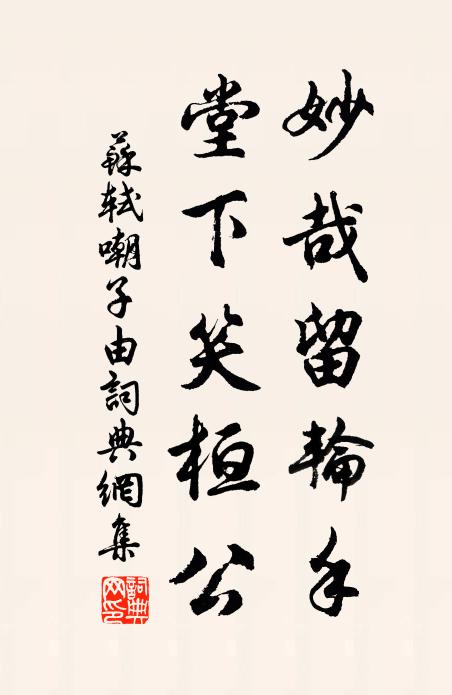 妙哉留輪手
堂下笑桓公
蘇軾嘲子由詞典網集
詞典網印